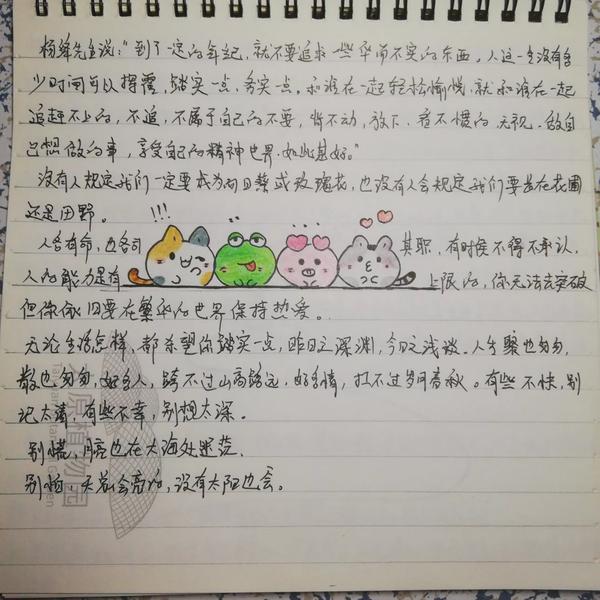 杨绛先生说:"到了一定的年纪,就不要追求一些华而不实的东西。人这一生没有多
少时间可以挥霍,踏实一点,务实一点。和谁在一起轻松愉悦,就和谁在一起
追赶不上的,不追,不属于自己的不要,背不动,放下,看不惯的无视,做自
己想做的事,享受自己的精神世界,如此甚好。"
没有人规定我们一定要成为向日葵或玫瑰花,也没有人会规定我们要长在花園
还是田野。
!!!
人各有命,也各司其职,有时候不得不承认,
人的能力是有上限的,你无法去突破
但你依旧要在繁杂的世界保持热爱。
无论生活怎样,都希望你踏实一点,昨日之深渊,今日之浅谈。人生聚也匆匆,
散也匆匆,好多人,跨不过山高路远,好多情,扛不过岁月春秋。有些不快,别
记太清,有些不幸,别想太深。
别慌,月亮也在大海处迷茫.
别怕,天总会亮的,没有太阳也会。
原植物园